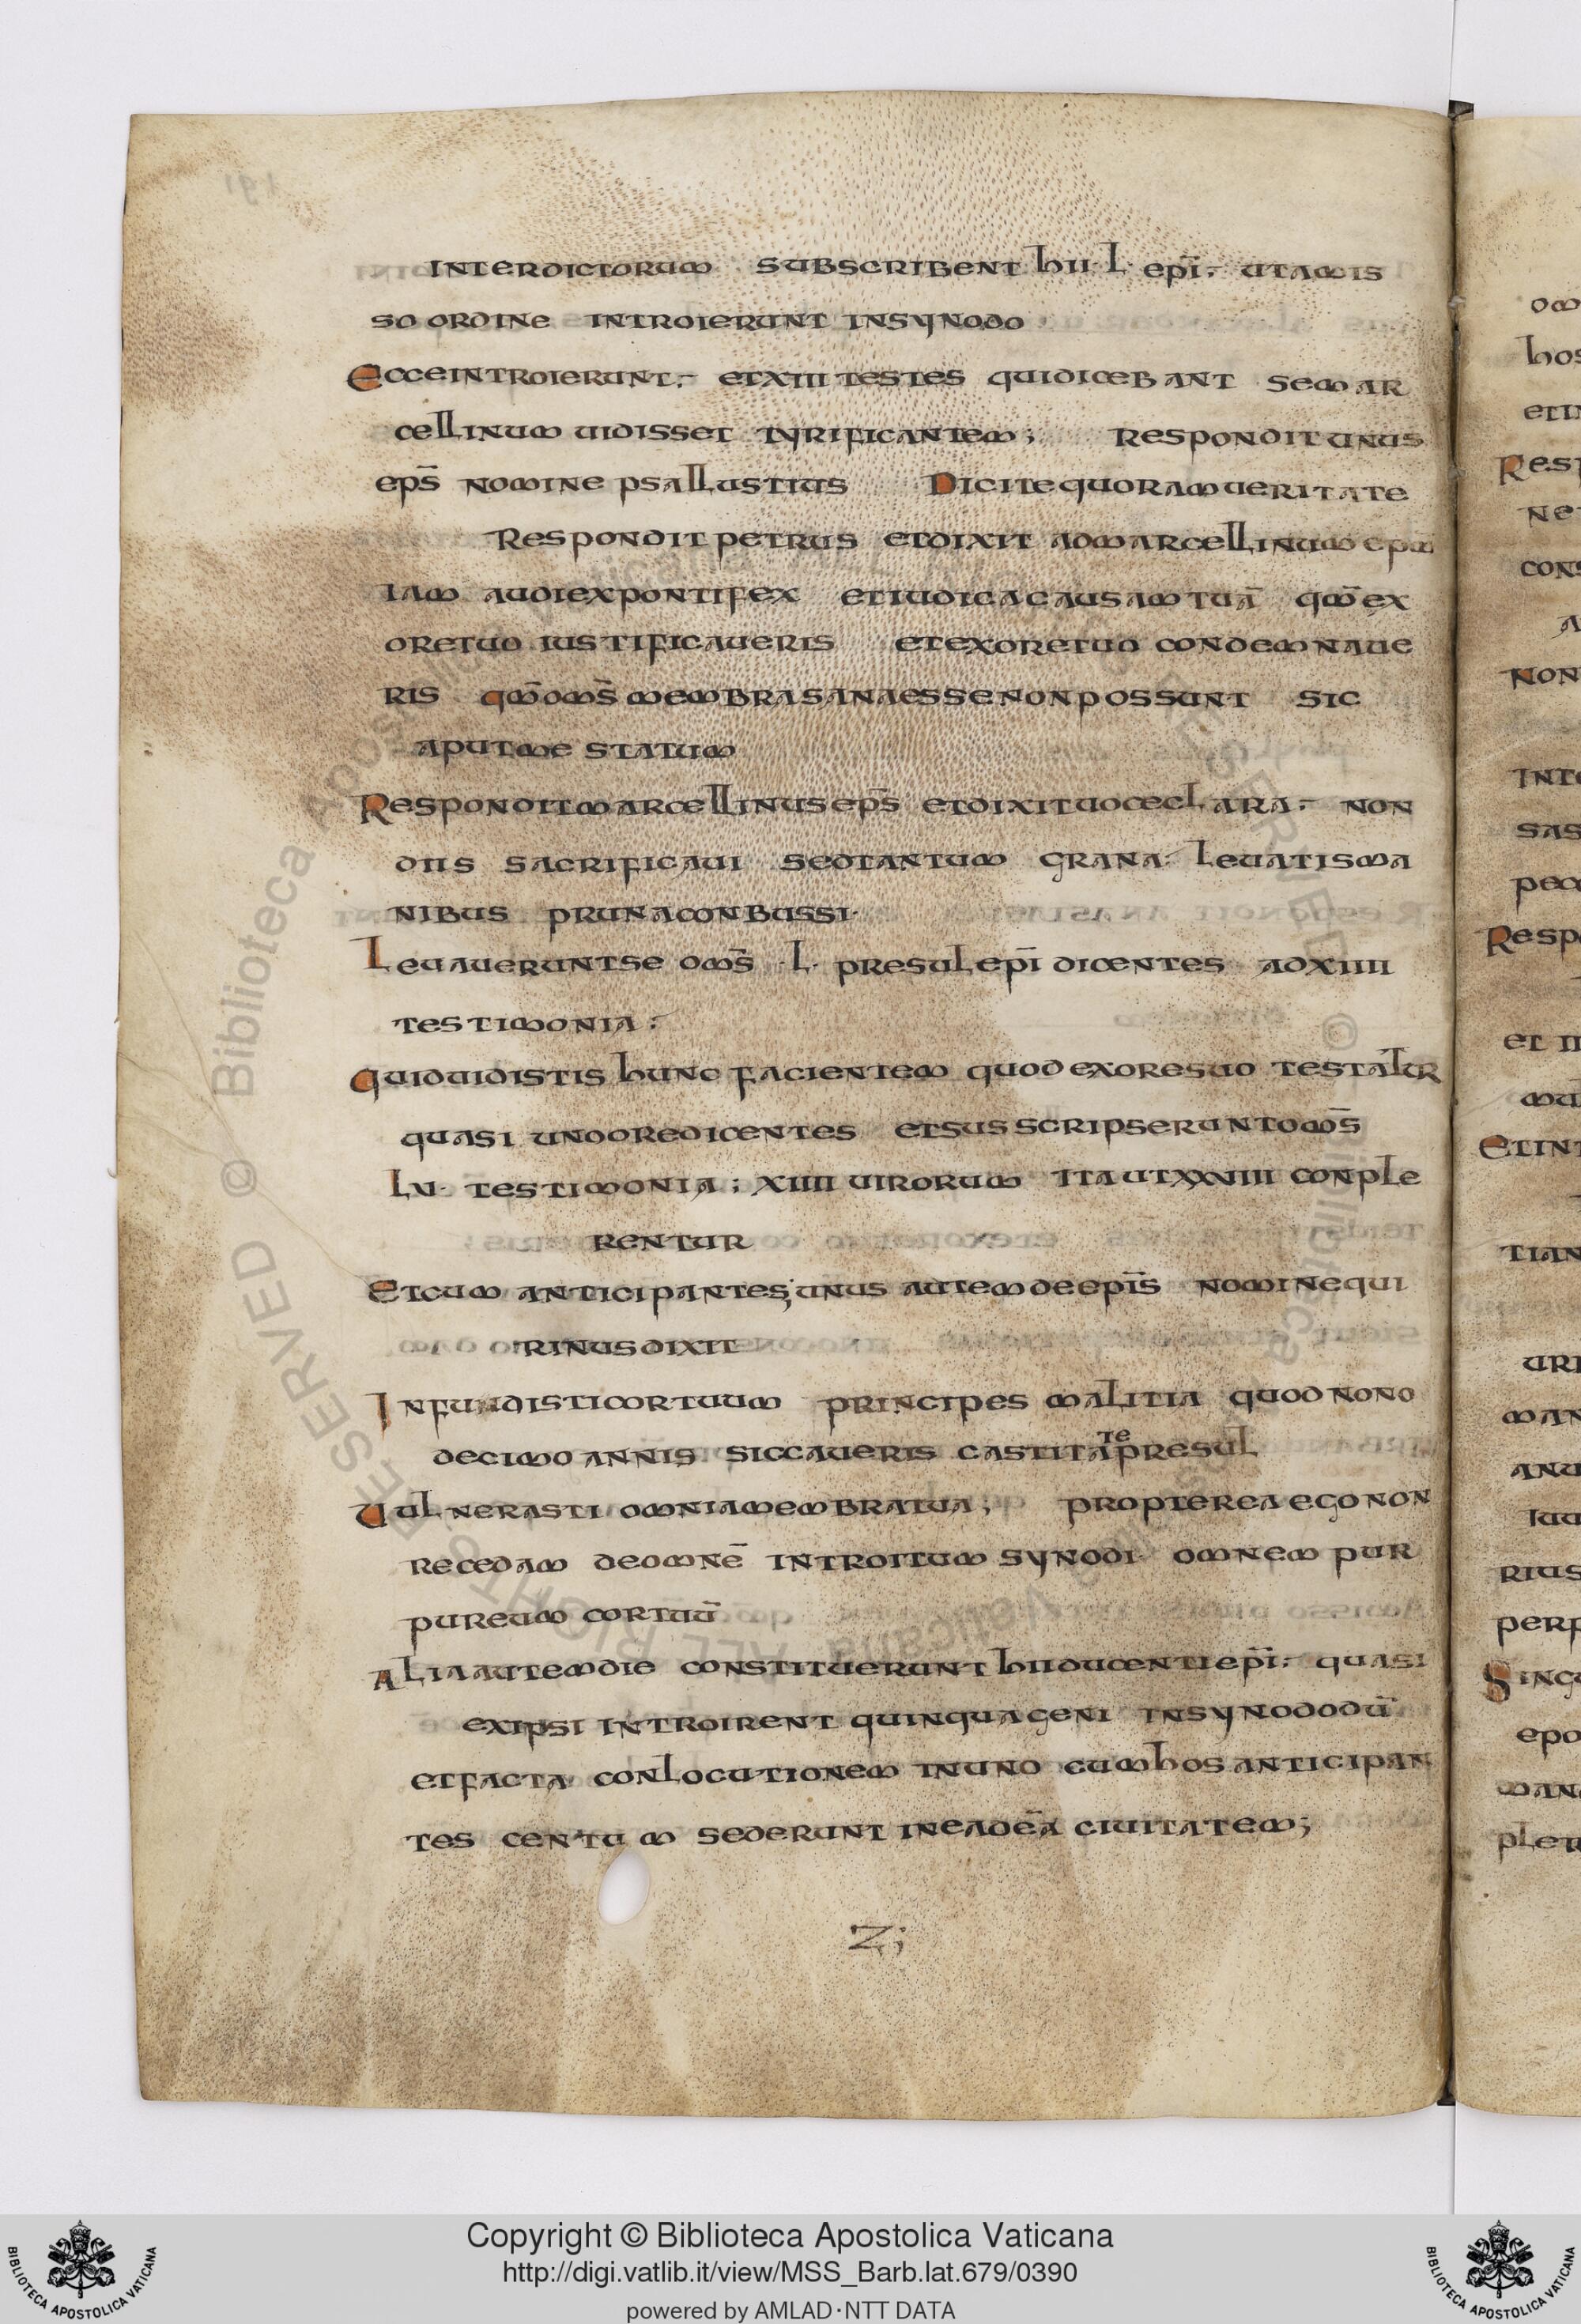 INTERDICTORUM SUBSCRIBENT hII · L · epı̄ ·, UTAMIS
SO ORDINE INTROIERUNT INSYNODO
ECCEINTROIERUNT ·, ETXIIII TESTES QUIDICEBANT SEMAR
CELLINUM UIDISSET TYRIFICANTEM; RESPONDIT UNUS
EPS̄ NOMINE PSALLUSTIUS DICITEQUORAMUERITATE
RESPONDIT PETRUS ETDIXIT ADMARCELLINUM EPM̄
IAM AUDIEXPONTIFEX ETIUDICACAUSAMTUĀ QM̄EX
ORETUO IUSTIFICAUERIS ETEXORETUO CONDEMNAUE
RIS QM̄OMS̄ MEMBRASANAESSENONPOSSUNT SIC
APUTME STATUM
RESPONDITMARCELLINUSEPS̄ ETDIXITUOCECLARA ·, NON
DIIS SACRIFICAUI SEDTANTUM GRANA · LEUATISMA
NIBUS PRUNACONBUSSI ·
LEUAUERUNTSE OMS̄ · L · PRESULEPĪ DICENTES ADXIIII
TESTIMONIA ·,
QUIDUIDISTIS HUNC FACIENTEM QUODEXORESUO TESTATUR
QUASI UNOOREDICENTES ETSUSSCRIPSERUNTOMS̄
LV · TESTIMONIA; XIIII UIRORUM ITAUTXXVIIII CONPLE
RENTUR
ETCUM ANTICIPANTES; UNUS AUTEMDEEPIS̄ NOMINEQUI
RINUSDIXIT
INFUNDISTICORTUUM PRINCIPES MALITIA QUODNONO
DECIMOANNIS SICCAUERIS CASTITATEPRESUL
UULNERASTI OMNIAMEMBRATUA; PROPTEREAEGONON
RECEDAM DEOMNĒ INTROITUM SYNODI · OMNEM PUR
PUREUM CORTUŪ
ALIAAUTEMDIE CONSTITUERUNT hIIDUCENTIEPĪ ·, QUASI
EXIPSI INTROIRENT QUINQUAGENI INSYNODODŪ
ETFACTA CONLOCUTIONEM INUNO CUMHOSANTICIPAN
TES CENTUM SEDERUNT INEADĒA CIUITATEM;
Z;
Copyright © Biblioteca Apostolica Vaticana
http://digi.vatlib.it/view/MSS_Barb.lat.679/0390
powered by AMLAD·NTT DATA